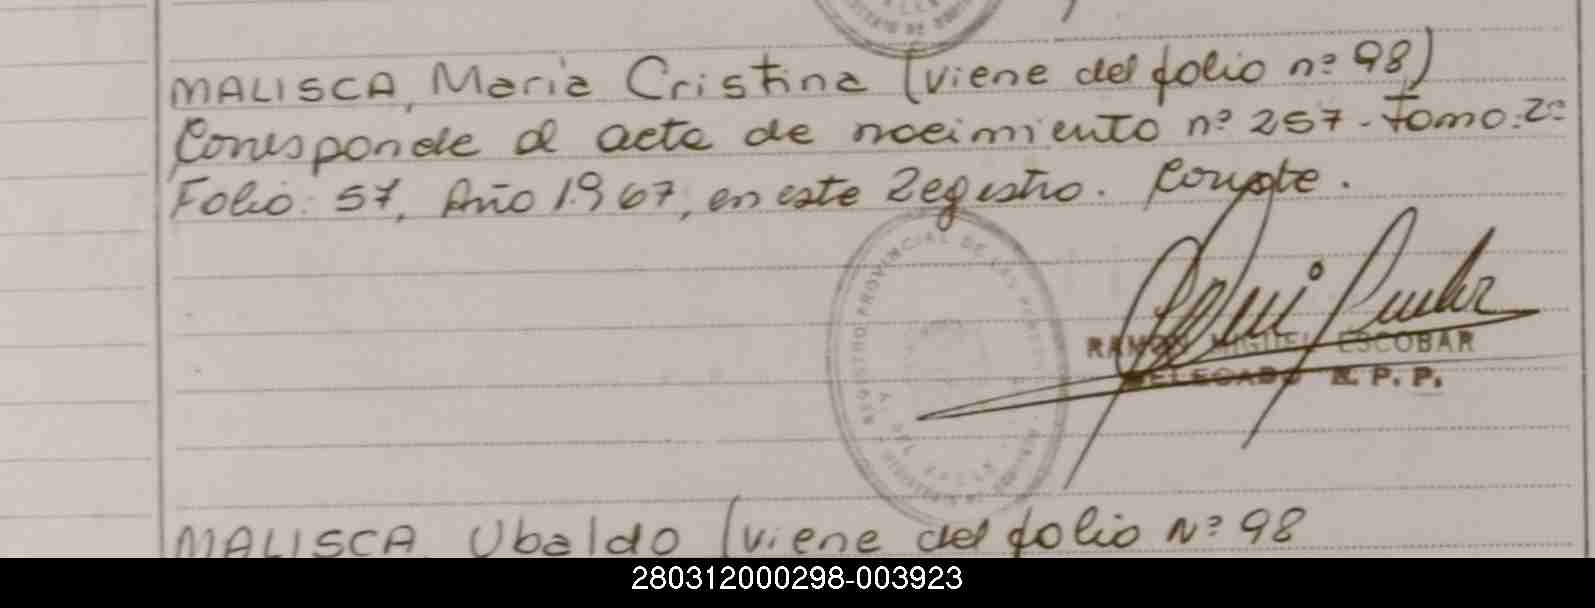 MALISCA, Maria Cristina (viene del folio nº 98)
Corresponde al acta de nacimiento nº 257 - Tomo: 2º
Folio: 57, Año 1967, en este Registro. Conste.
REGISTRO PROVINCIAL DE LAS PERSONAS
RAMON MIGUEL ESCOBAR
DELEGADO R. P. P.
MALISCA, Ubaldo (viene del folio Nº 98
280312000298-003923